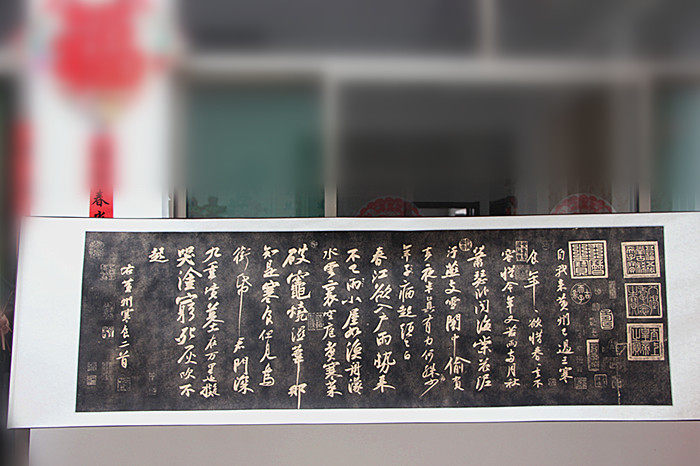 自我來黃州已過三寒
食年〻欲惜春〻去不
容惜今年又苦雨兩月秋
蕭瑟卧聞海棠花泥
汙燕支雪闇中偷負
去夜半真有力何殊少
年子病起須已白
春江欲入户雨勢來
不已雨小屋如漁舟濛〻
水雲裏空庖煮寒菜
破竈燒濕葦那
知是寒食但見烏
銜帋君門深
九重墳墓在万里也擬
哭塗窮死灰吹不
起
右黃州寒食二首
春